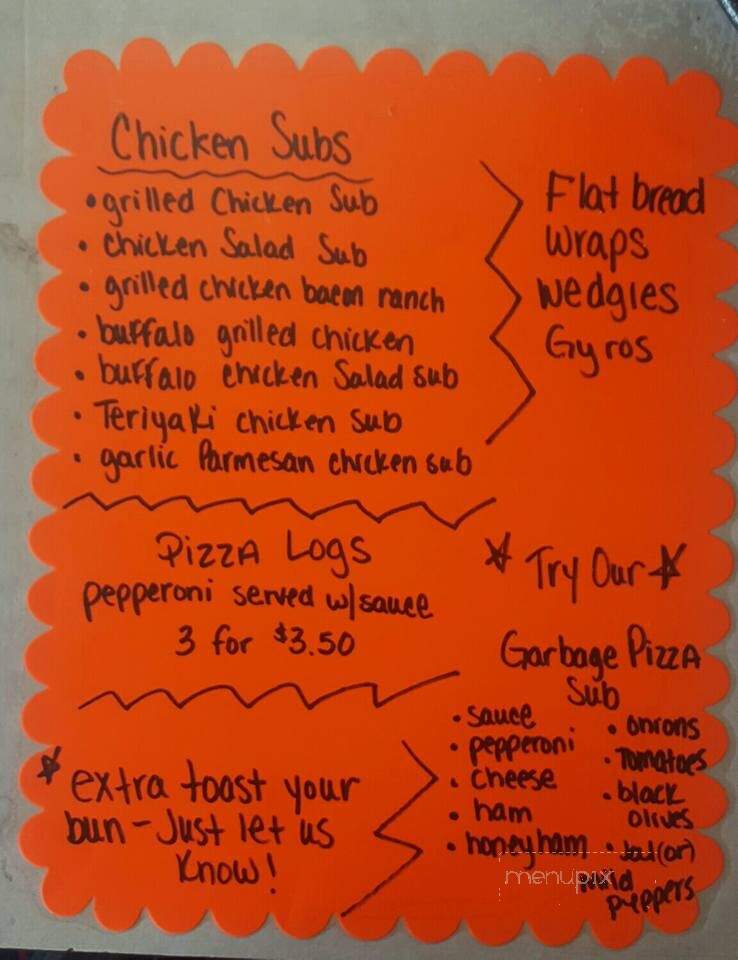 Chicken Subs
• grilled Chicken Sub
• chicken Salad Sub
• grilled chicken bacon ranch
• buffalo grilled chicken
• buffalo chicken Salad sub
• Teriyaki chicken sub
• garlic Parmesan chicken sub
Flat bread
wraps
wedgies
Gyros
Pizza Logs
pepperoni served w/sauce
3 for $3.50
Try Our
Garbage Pizza
Sub
• sauce
• pepperoni
• cheese
• ham
• honey ham
• onions
• Tomatoes
• black
olives
(or)
mild
peppers
extra toast your
bun - Just let us
Know!
menupix